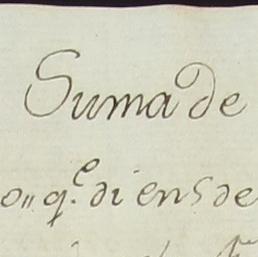 Suma de
o,, q.e di en 5 de